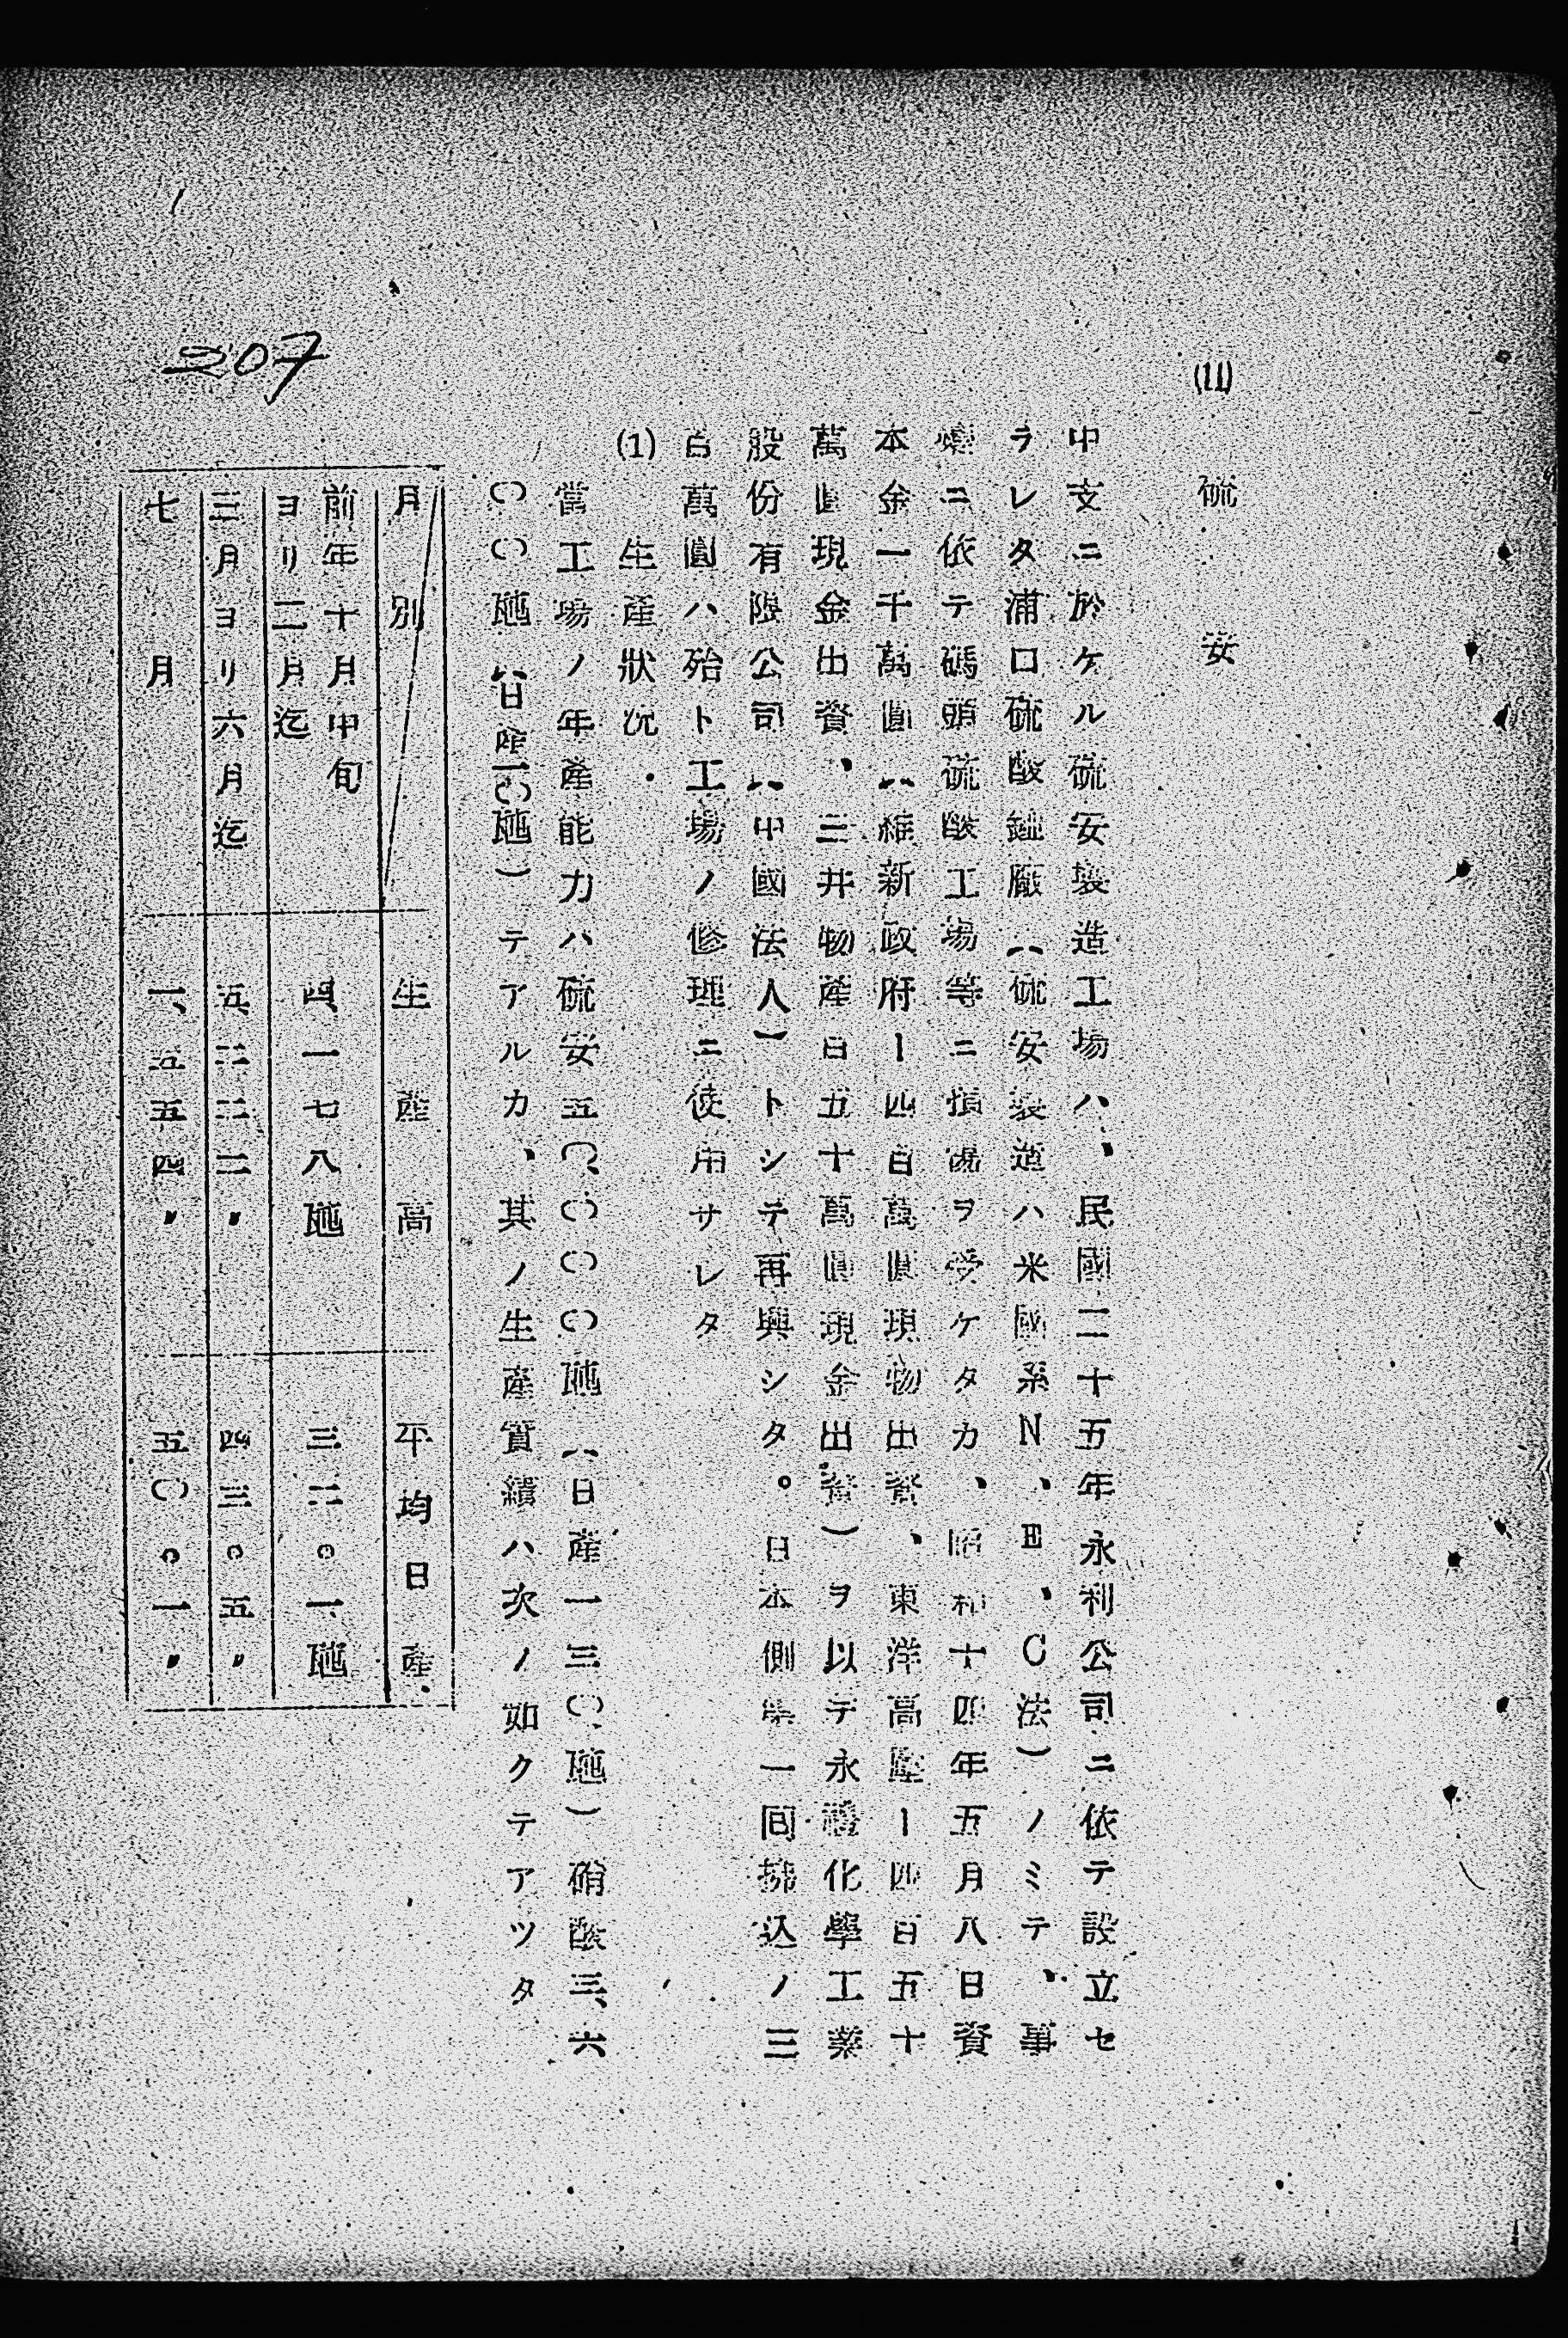 (11) 硫安
中支ニ於ケル硫安製造工場ハ、民國二十五年永利公司ニ依テ設立セ
ラレタ浦口硫酸錏廠(硫安製造ハ米國系N、E、C法)ノミテ、事
變ニ依テ碼頭硫酸工場等ニ損傷ヲ受ケタカ、昭和十四年五月八日資
本金一千萬圓(維新政府ー四百萬圓現物出資、東洋高壓ー四百五十
萬圓現金出資、三井物産百五十萬圓現金出資)ヲ以テ永禮化學工業
股份有限公司(中國法人)トシテ再興シタ。日本側第一回拂込ノ三
百萬圓ハ殆ト工場ノ修理ニ使用サレタ
(1) 生産狀況
當工場ノ年產能力ハ硫安五〇、〇〇〇瓲(日產一三〇瓲)硝酸三、六
〇〇瓲(日產一〇瓲)テアルカ、其ノ生產實績ハ次ノ如クテアツタ
月別 生產高 平均日產
前年十月中旬
ヨリ二月迄 四、一七八瓲 三二。一瓲
三月ヨリ六月迄 五、三二二〃 四三。五〃
七月 一、五五四〃 五〇。一〃
207